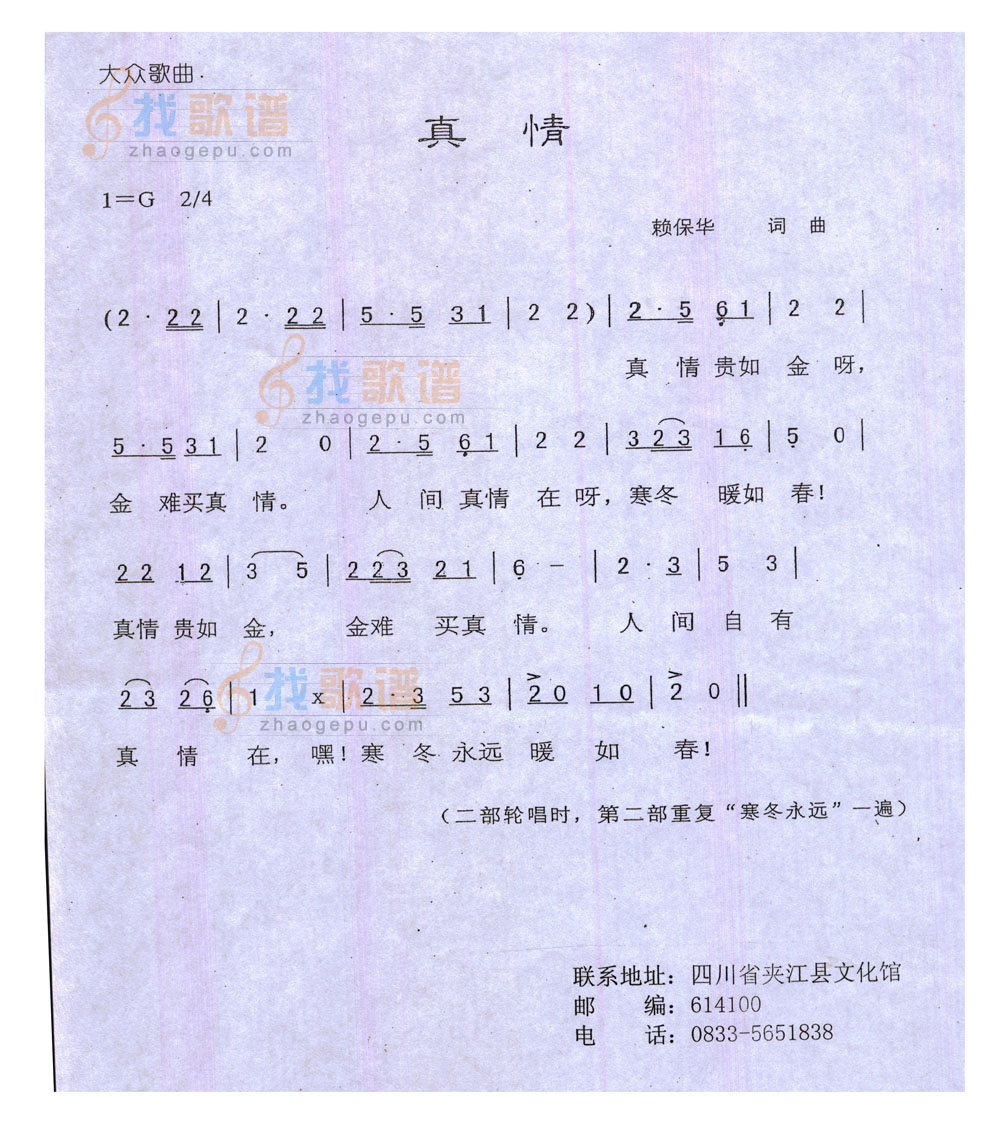 大众歌曲.
找歌谱
zhaogepu.com
真 情
1=G 2/4
赖保华 词 曲
(2 · 22 | 2 · 22 | 5 · 5 31 | 2 2) | 2 · 5 61 | 2 2 |
真 情 贵如 金 呀,
找歌谱
zhaogepu.com
5 · 5 31 | 2 0 | 2 · 5 61 | 2 2 | 323 16 | 5 0 |
金 难买真 情。 人 间 真情 在 呀, 寒冬 暖如 春!
22 12 | 3 5 | 223 21 | 6 – | 2 · 3 | 5 3 |
真情 贵如 金, 金难 买真 情。 人 间 自 有
找歌谱
zhaogepu.com
23 26 | 1 x | 2 · 3 53 | 20 10 | 2 0 ||
真 情 在, 嘿! 寒 冬 永远 暖 如 春!
(二部轮唱时, 第二部重复“寒冬永远”一遍)
联系地址: 四川省夹江县文化馆
邮 编: 614100
电 话: 0833-5651838